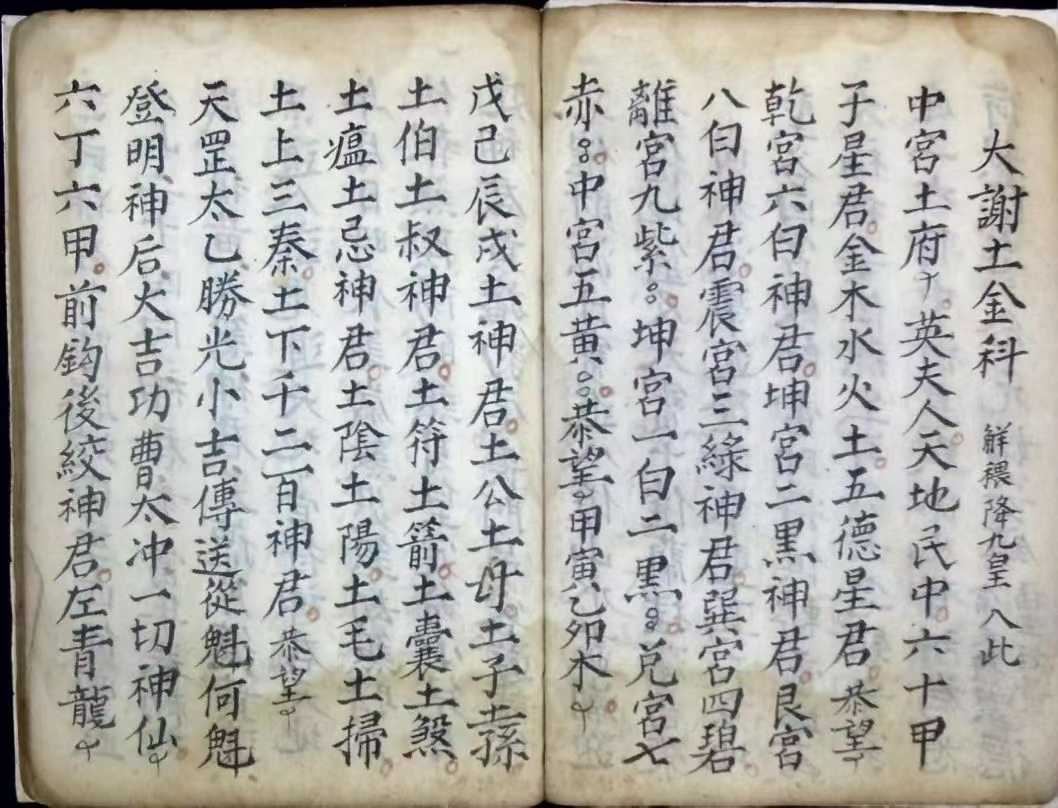 大謝土金科 解禳降九皇八此
中宮土府々英夫人天地民中六十甲
子星君金木水火土五德星君恭望々
乾宮六白神君坤宮二黑神君艮宮
八白神君震宮三綠神君巽宮四碧
離宮九紫坤宮一白二黑兌宮七
赤中宮五黃恭望々甲寅乙卯木々
戊己辰戌土神君土公土母土子土孫
土伯土叔神君土符土箭土囊土煞
土瘟土忌神君土陰土陽土毛土掃
土上三秦土下千二百神君恭望々
天罡太乙勝光小吉傳送從魁何魁
登明神后大吉功曹太冲一切神仙々
六丁六甲前鈎後絞神君左青龍々